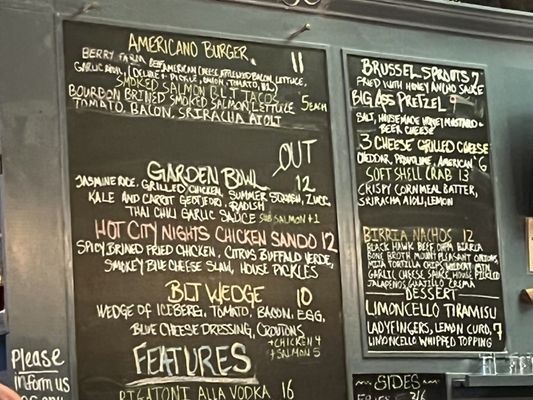 AMERICANO BURGER 11
BERRY FARM BEEF, AMERICAN CHEESE, APPLEWOOD BACON, LETTUCE,
GARLIC AIOLI, (DELUXE + PICKLE, ONION, TOMATO,
SMOKED SALMON BLT TACOS 5 EACH
BOURBON BRINED SMOKED SALMON, LETTUCE
TOMATO, BACON, SRIRACHA AIOLI
OUT
GARDEN BOWL 12
JASMINE RICE, GRILLED CHICKEN, SUMMER SQUASH, ZUCC,
KALE AND CARROT, RADISH
THAI CHILI GARLIC SAUCE SUB SALMON +1
HOT CITY NIGHTS CHICKEN SANDO 12
SPICY BRINED FRIED CHICKEN, CITRUS BUFFALO VERDE,
SMOKEY BLUE CHEESE SLAW, HOUSE PICKLES
BLT WEDGE 10
WEDGE OF ICEBERG, TOMATO, BACON, EGG,
BLUE CHEESE DRESSING, CROUTONS
+CHICKEN 4
+SALMON 5
FEATURES
RIGATONI ALLA VODKA 16
BRUSSEL SPROUTS 9
FRIED WITH HONEY ANCHO SAUCE
BIG ASS PRETZEL 9
SALT, HOUSEMADE HONEY MUSTARD +
BEER CHEESE
3 CHEESE GRILLED CHEESE
CHEDDAR, PROVOLONE, AMERICAN 6
SOFT SHELL CRAB 13
CRISPY CORNMEAL BATTER,
SRIRACHA AIOLI, LEMON
BIRRIA NACHOS 12
BLACK HAWK BEEF, CHIPA BIRRIA
BONE BROTH MOUNT PLEASANT ONIONS,
MITA TORTILLA CHIPS, WILDCAT MTN
GARLIC CHEESE SAUCE, HOUSE PICKLED
JALAPENOS GUAJILLO CREMA
DESSERT
LIMONCELLO TIRAMISU
LADYFINGERS, LEMON CURD, 7
LIMONCELLO WHIPPED TOPPING
Please
inform us
SIDES
FRIES 3/6